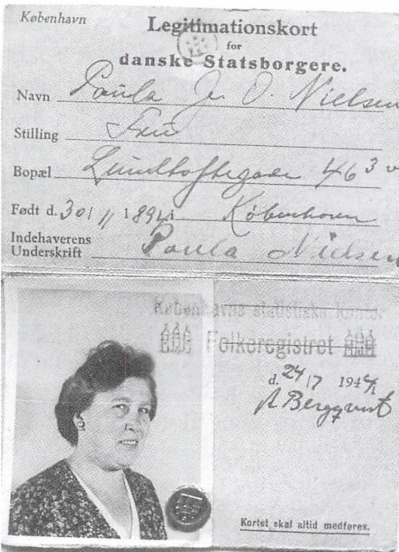 København
Legitimationskort
for
danske Statsborgere.
Navn Paula J. O. Nielsen
Stilling Fru
Bopæl Lundtoftegade 46 3
Født d. 30/11 189 i København
Indehaverens
Underskrift Paula Nielsen
Københavns statistiske Kontor
Folkeregistret
d. 24/7 194
A Bergqvist
Kortet skal altid medføres.